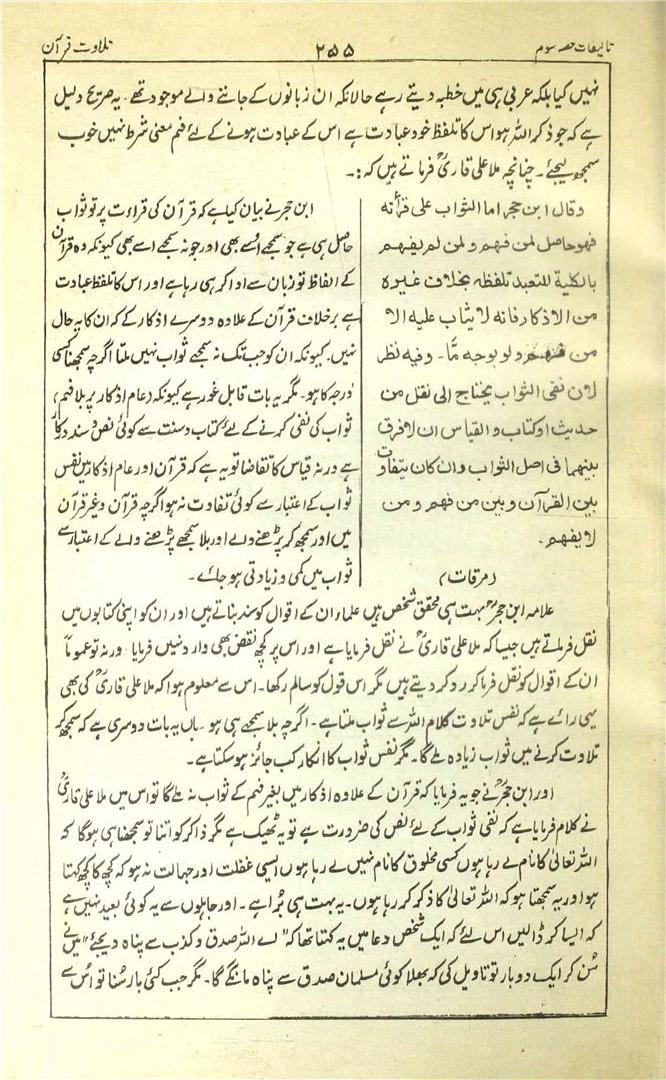 تالیفات حصہ سوم
۲۵۵
تلاوت قرآن
نہیں کیا بلکہ عربی ہی میں خطبہ دیتے رہے حالانکہ ان زبانوں کے جاننے والے موجود تھے۔ یہ صریح دلیل
ہے کہ جو ذکر اللہ ہو اس کا تلفظ خود عبادت ہے اس کے عبادت ہونے کے لئے فہم معنی شرط نہیں خوب
سمجھ لیجئے۔ چنانچہ ملا علی قاریؒ فرماتے ہیں کہ:۔
وقال ابن حجر اما الثواب علی قرأته
فهو حاصل لمن فهم و لمن لم یفهم
بالکلیة للتعبد بتلفظه بخلاف غیره
من الاذکار فانه لا یثاب علیه الا
من فهمه و لو بوجه مّا۔ و فیه نظر
لان نفی الثواب یحتاج الی نقل من
حدیث او کتاب و القیاس ان لا فرق
بینهما فی اصل الثواب و ان کان یتفاوت
بین القرآن و بین من فهم و من
لا یفهم۔
(مرقات)
ابن حجر نے بیان کیا ہے کہ قرآن کی قراءت پر تو ثواب
حاصل ہی ہے جو سمجھے اُسے بھی اور جو نہ سمجھے اسے بھی کیونکہ وہ قرآن
کے الفاظ تو زبان سے ادا کر ہی رہا ہے اور اس کا تلفظ عبادت
ہے برخلاف قرآن کے علاوہ دوسرے اذکار کے کہ ان کا یہ حال
نہیں۔ کیونکہ ان کو جب تک نہ سمجھے ثواب نہیں ملتا اگرچہ سمجھنا کسی
درجہ کا ہو۔ مگر یہ بات قابل غور ہے کیونکہ (عام اذکار پر بلا فہم)
ثواب کی نفی کرنے کے لئے کتاب و سنت سے کوئی نص و سند درکار
ہے ورنہ قیاس کا تقاضا تو یہ ہے کہ قرآن اور عام اذکار میں نفس
ثواب کے اعتبار سے کوئی تفاوت نہ ہو اگرچہ قرآن و غیر قرآن
میں اور سمجھ کر پڑھنے والے اور بلا سمجھے پڑھنے والے کے اعتبار سے
ثواب میں کمی و زیادتی ہو جائے۔
علامہ ابن حجرؒ بہت ہی محقق شخص ہیں علماء ان کے اقوال کو سند بناتے ہیں اور ان کو اپنی کتابوں میں
نقل فرماتے ہیں جیسا کہ ملا علی قاریؒ نے نقل فرمایا ہے اور اس پر کچھ نقض بھی وارد نہیں فرمایا ورنہ تو عموماً
ان کے اقوال کو نقل فرما کر رد کر دیتے ہیں مگر اس قول کو سالم رکھا۔ اس سے معلوم ہوا کہ ملا علی قاریؒ کی بھی
یہی رائے ہے کہ نفس تلاوت کلام اللہ سے ثواب ملتا ہے۔ اگرچہ بلا سمجھے ہی ہو۔ ہاں یہ بات دوسری ہے کہ سمجھ کر
تلاوت کرنے میں ثواب زیادہ ملے گا۔ مگر نفس ثواب کا انکار کب جائز ہو سکتا ہے۔
اور ابن حجرؒ نے جو یہ فرمایا کہ قرآن کے علاوہ اذکار میں بغیر فہم کے ثواب نہ ملے گا تو اس میں ملا علی قاریؒ
نے کلام فرمایا ہے کہ نفی ثواب کے لئے نص کی ضرورت ہے تو یہ ٹھیک ہے مگر ذاکر کو اتنا تو سمجھنا ہی ہوگا کہ
اللہ تعالیٰ کا نام لے رہا ہوں کسی مخلوق کا نام نہیں لے رہا ہوں ایسی غفلت اور جہالت نہ ہو کہ کچھ کا کچھ کہتا
ہو اور یہ سمجھتا ہو کہ اللہ تعالیٰ کا ذکر کر رہا ہوں۔ یہ بہت ہی بُرا ہے۔ اور جاہلوں سے یہ کوئی بعید نہیں ہے
کہ ایسا کر ڈالیں اس لئے کہ ایک شخص دعا میں یہ کہتا تھا کہ "اے اللہ صدق و کذب سے پناہ دیجئے" میں نے
سُن کر ایک دو بار تو تاویل کی کہ بھلا کوئی مسلمان صدق سے پناہ مانگے گا۔ مگر جب کئی بار سُنا تو اُس سے